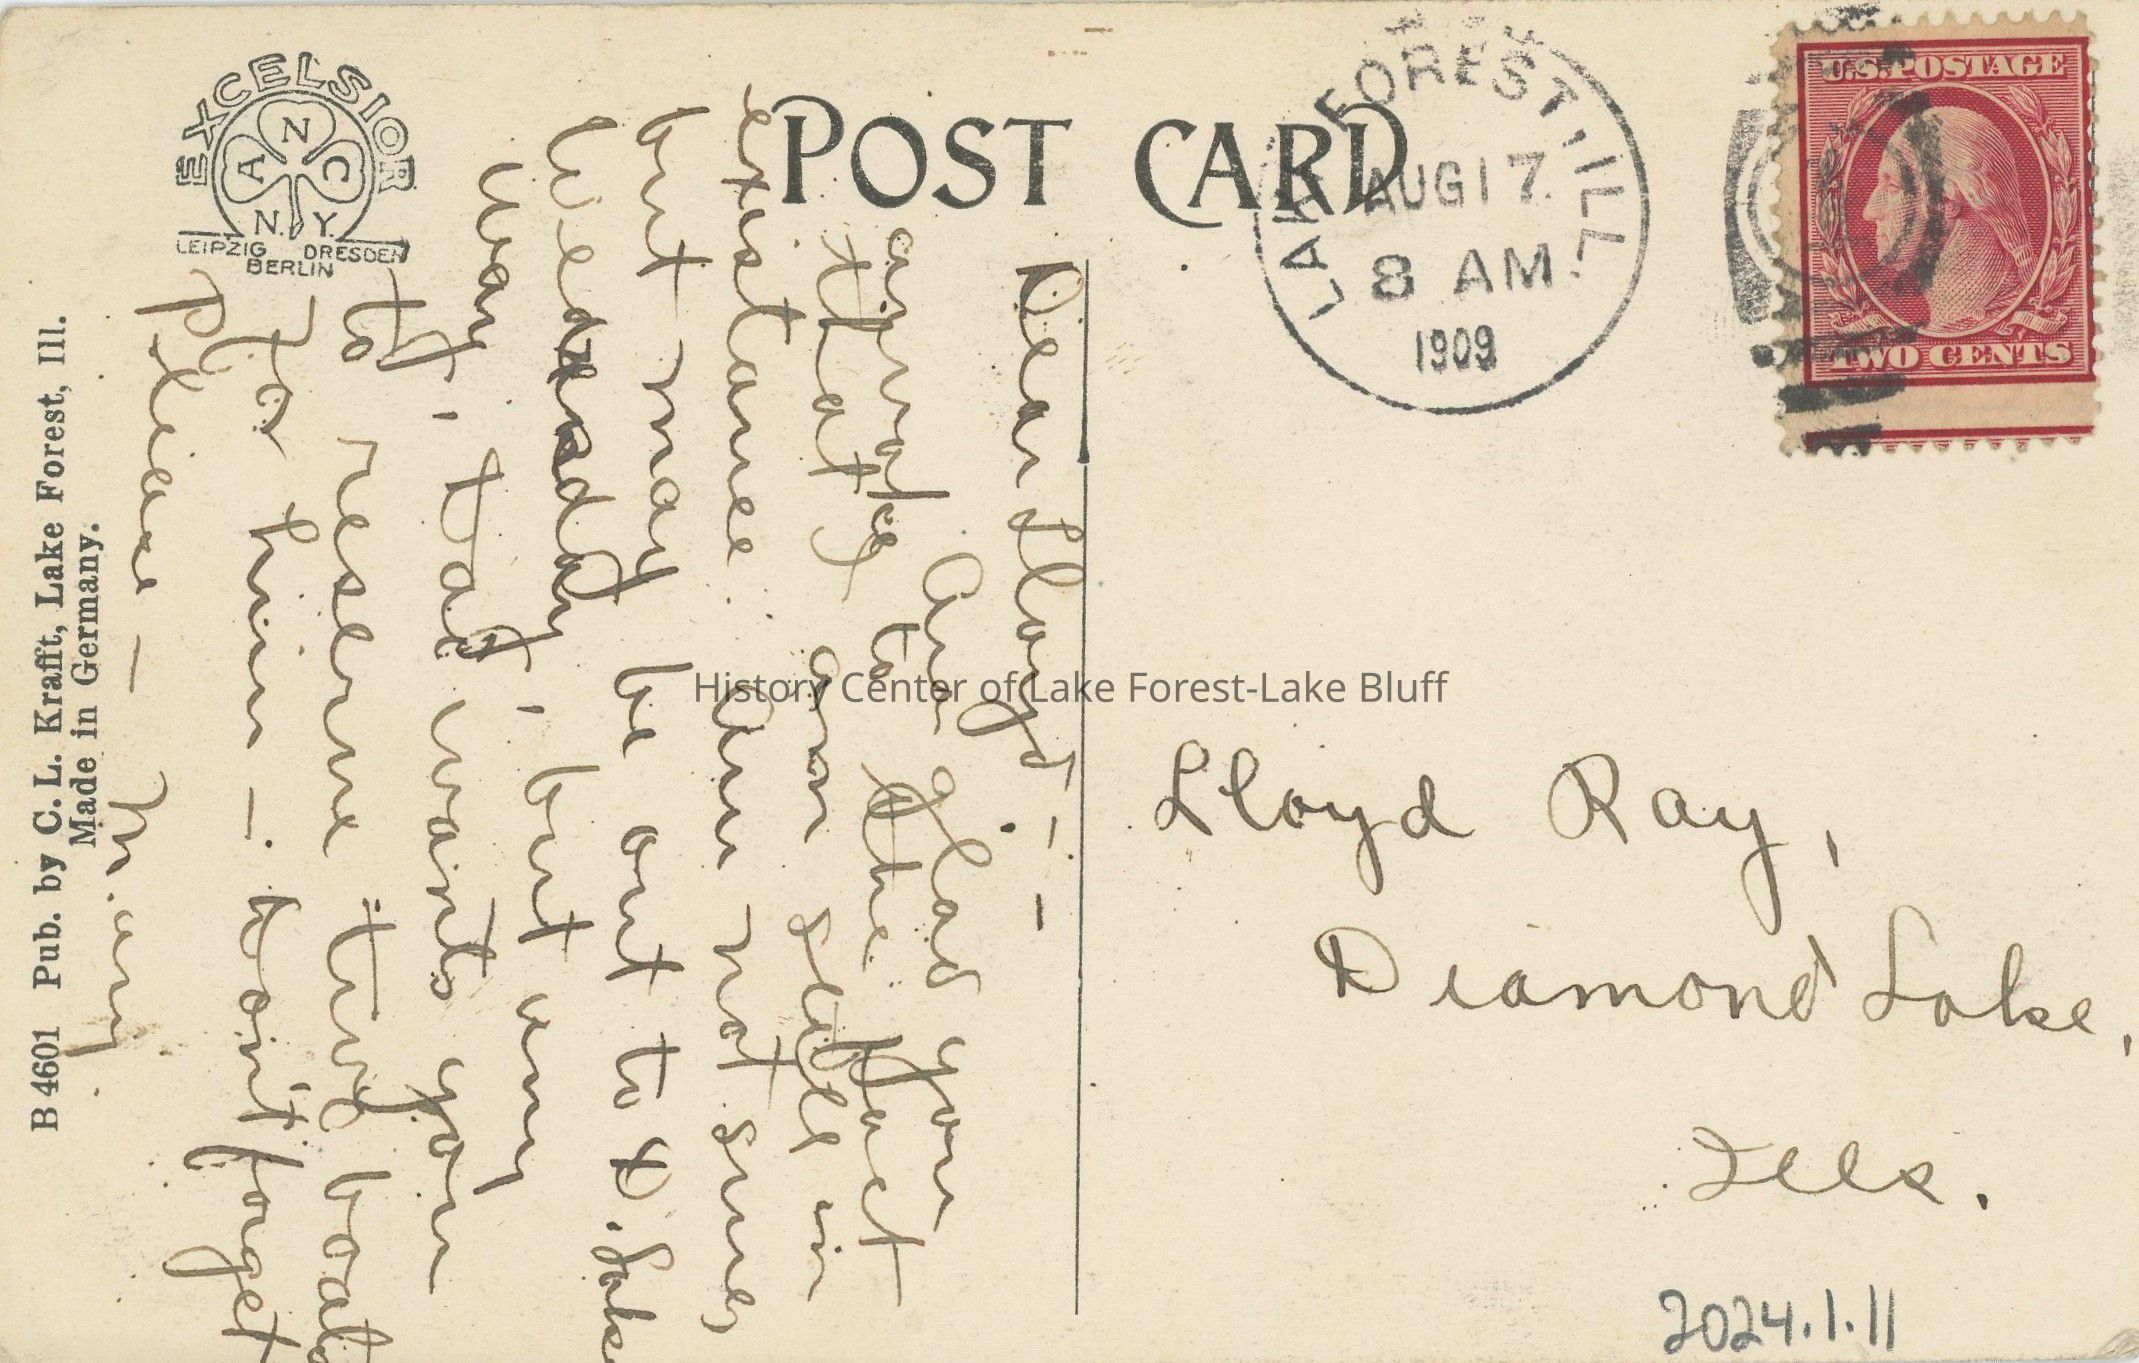 EXCELSIOR
A N C
N.Y.
LEIPZIG DRESDEN
BERLIN
POST CARD
LAKE FOREST ILL.
AUG 17
8 AM
1909
U.S. POSTAGE
TWO CENTS
Dear Lloyd, — —
Am glad you
awoke to the fact
that still in
existance. Am not sure,
but may be out to D. Lake
Wednesday, but any
way, Tad wants you
to reserve two boats
for him —. don't forget
please — Mary.
B 4601 Pub. by C. L. Krafft, Lake Forest, Ill.
Made in Germany.
History Center of Lake Forest-Lake Bluff
Lloyd Ray,
Diamond Lake,
Ills.
2024.1.11